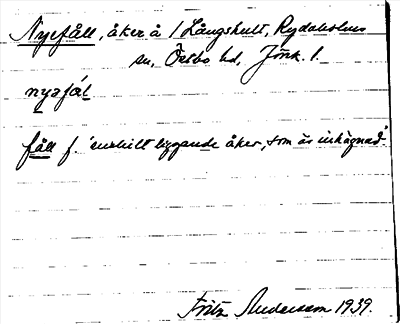 Nyefåll, åker å 1 Långshult, Rydaholms
sn, Östbo hd, Jönk. l.
nyafål
fåll f. 'enskilt liggande åker, som är inhägnad'.
Fritz Andersson 1939.